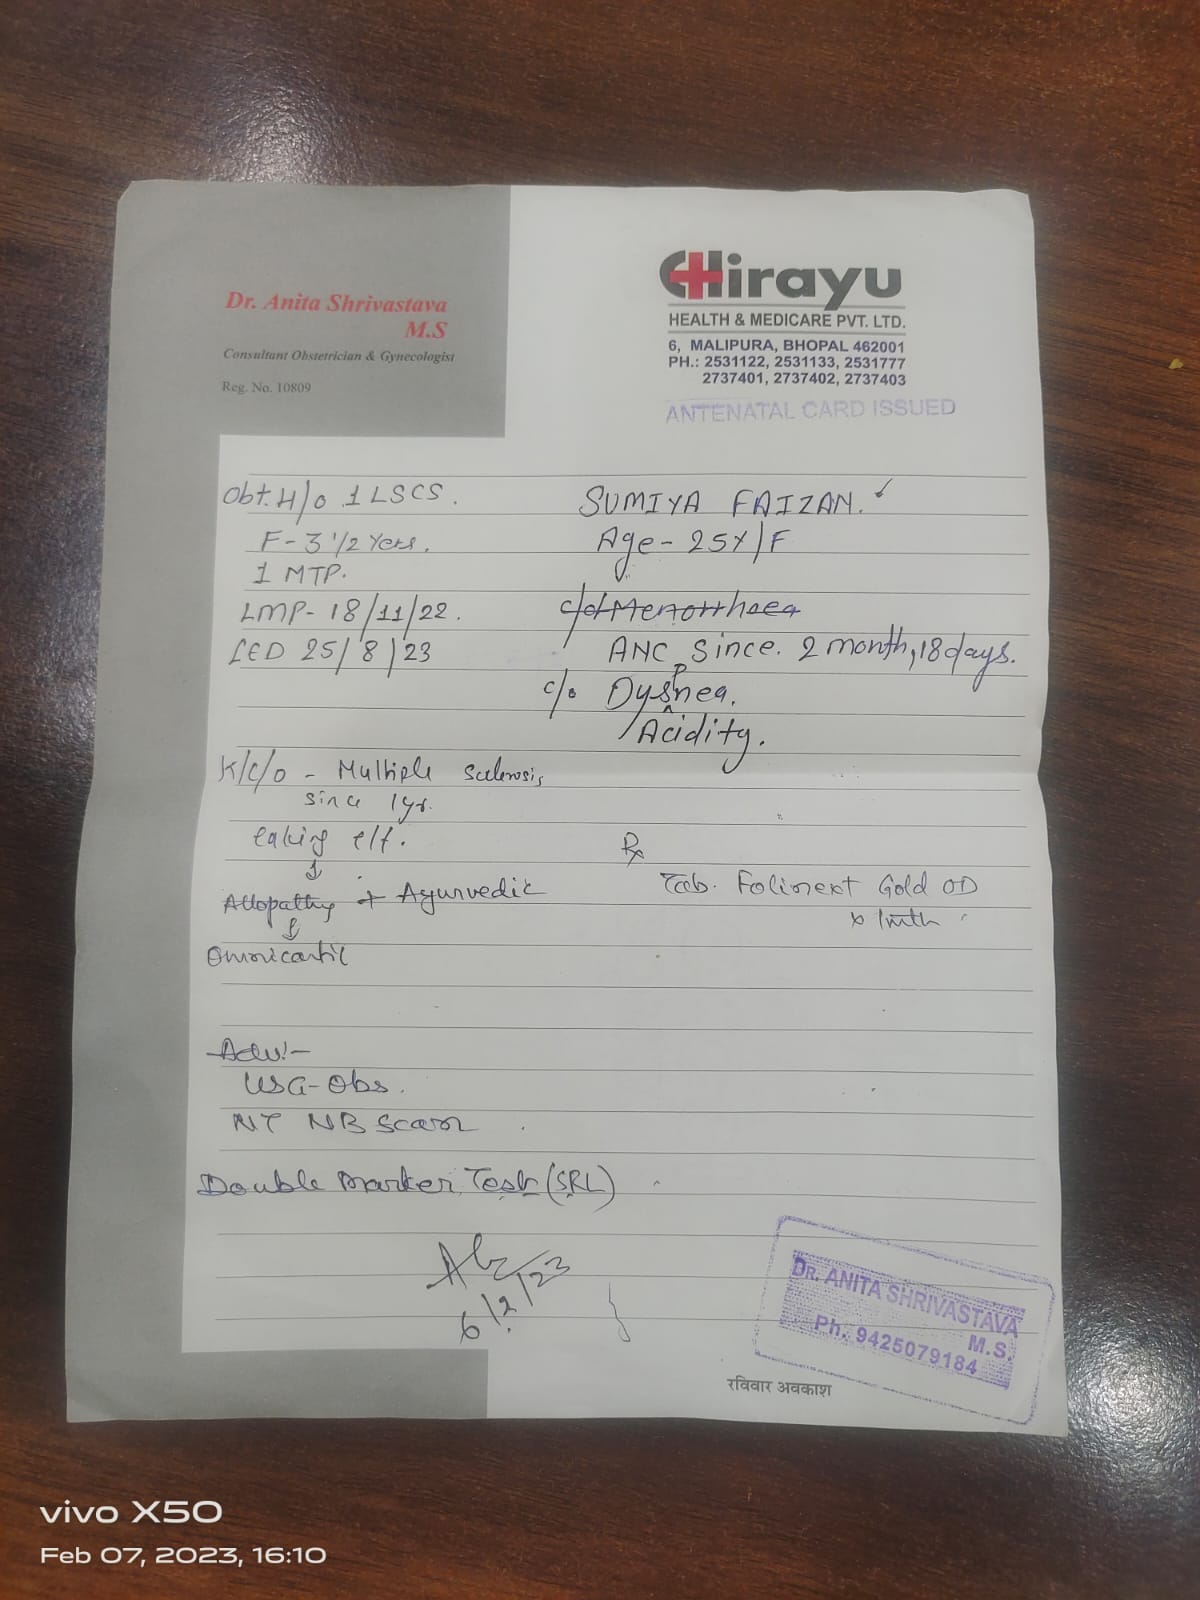 Dr. Anita Shrivastava
M.S
Consultant Obstetrician & Gynecologist
Reg. No. 10809
Chirayu
HEALTH & MEDICARE PVT. LTD.
6, MALIPURA, BHOPAL 462001
PH.: 2531122, 2531133, 2531777
2737401, 2737402, 2737403
ANTENATAL CARD ISSUED
Obt. H/o 1 LSCS.
F- 3 1/2 Yers.
1 MTP.
LMP- 18/11/22.
25/8/23
SUMIYA FAIZAN.
Age- 25Y/F
c/o Menorrhoea
ANC Since. 2 month, 18 days.
c/o Dyspnea.
Acidity.
K/C/O - Multiple Sclerosis
since 1yr.
taking
Allopathy + Ayurvedic
Omnicortil
Rx
Tab. Folinext Gold OD
x 1mth
Adv:-
USG-Obs.
NT NB Scan
Double Marker Test (SRL)
6/2/23
DR. ANITA SHRIVASTAVA
M.S.
Ph. 9425079184
रविवार अवकाश
vivo X50
Feb 07, 2023, 16:10